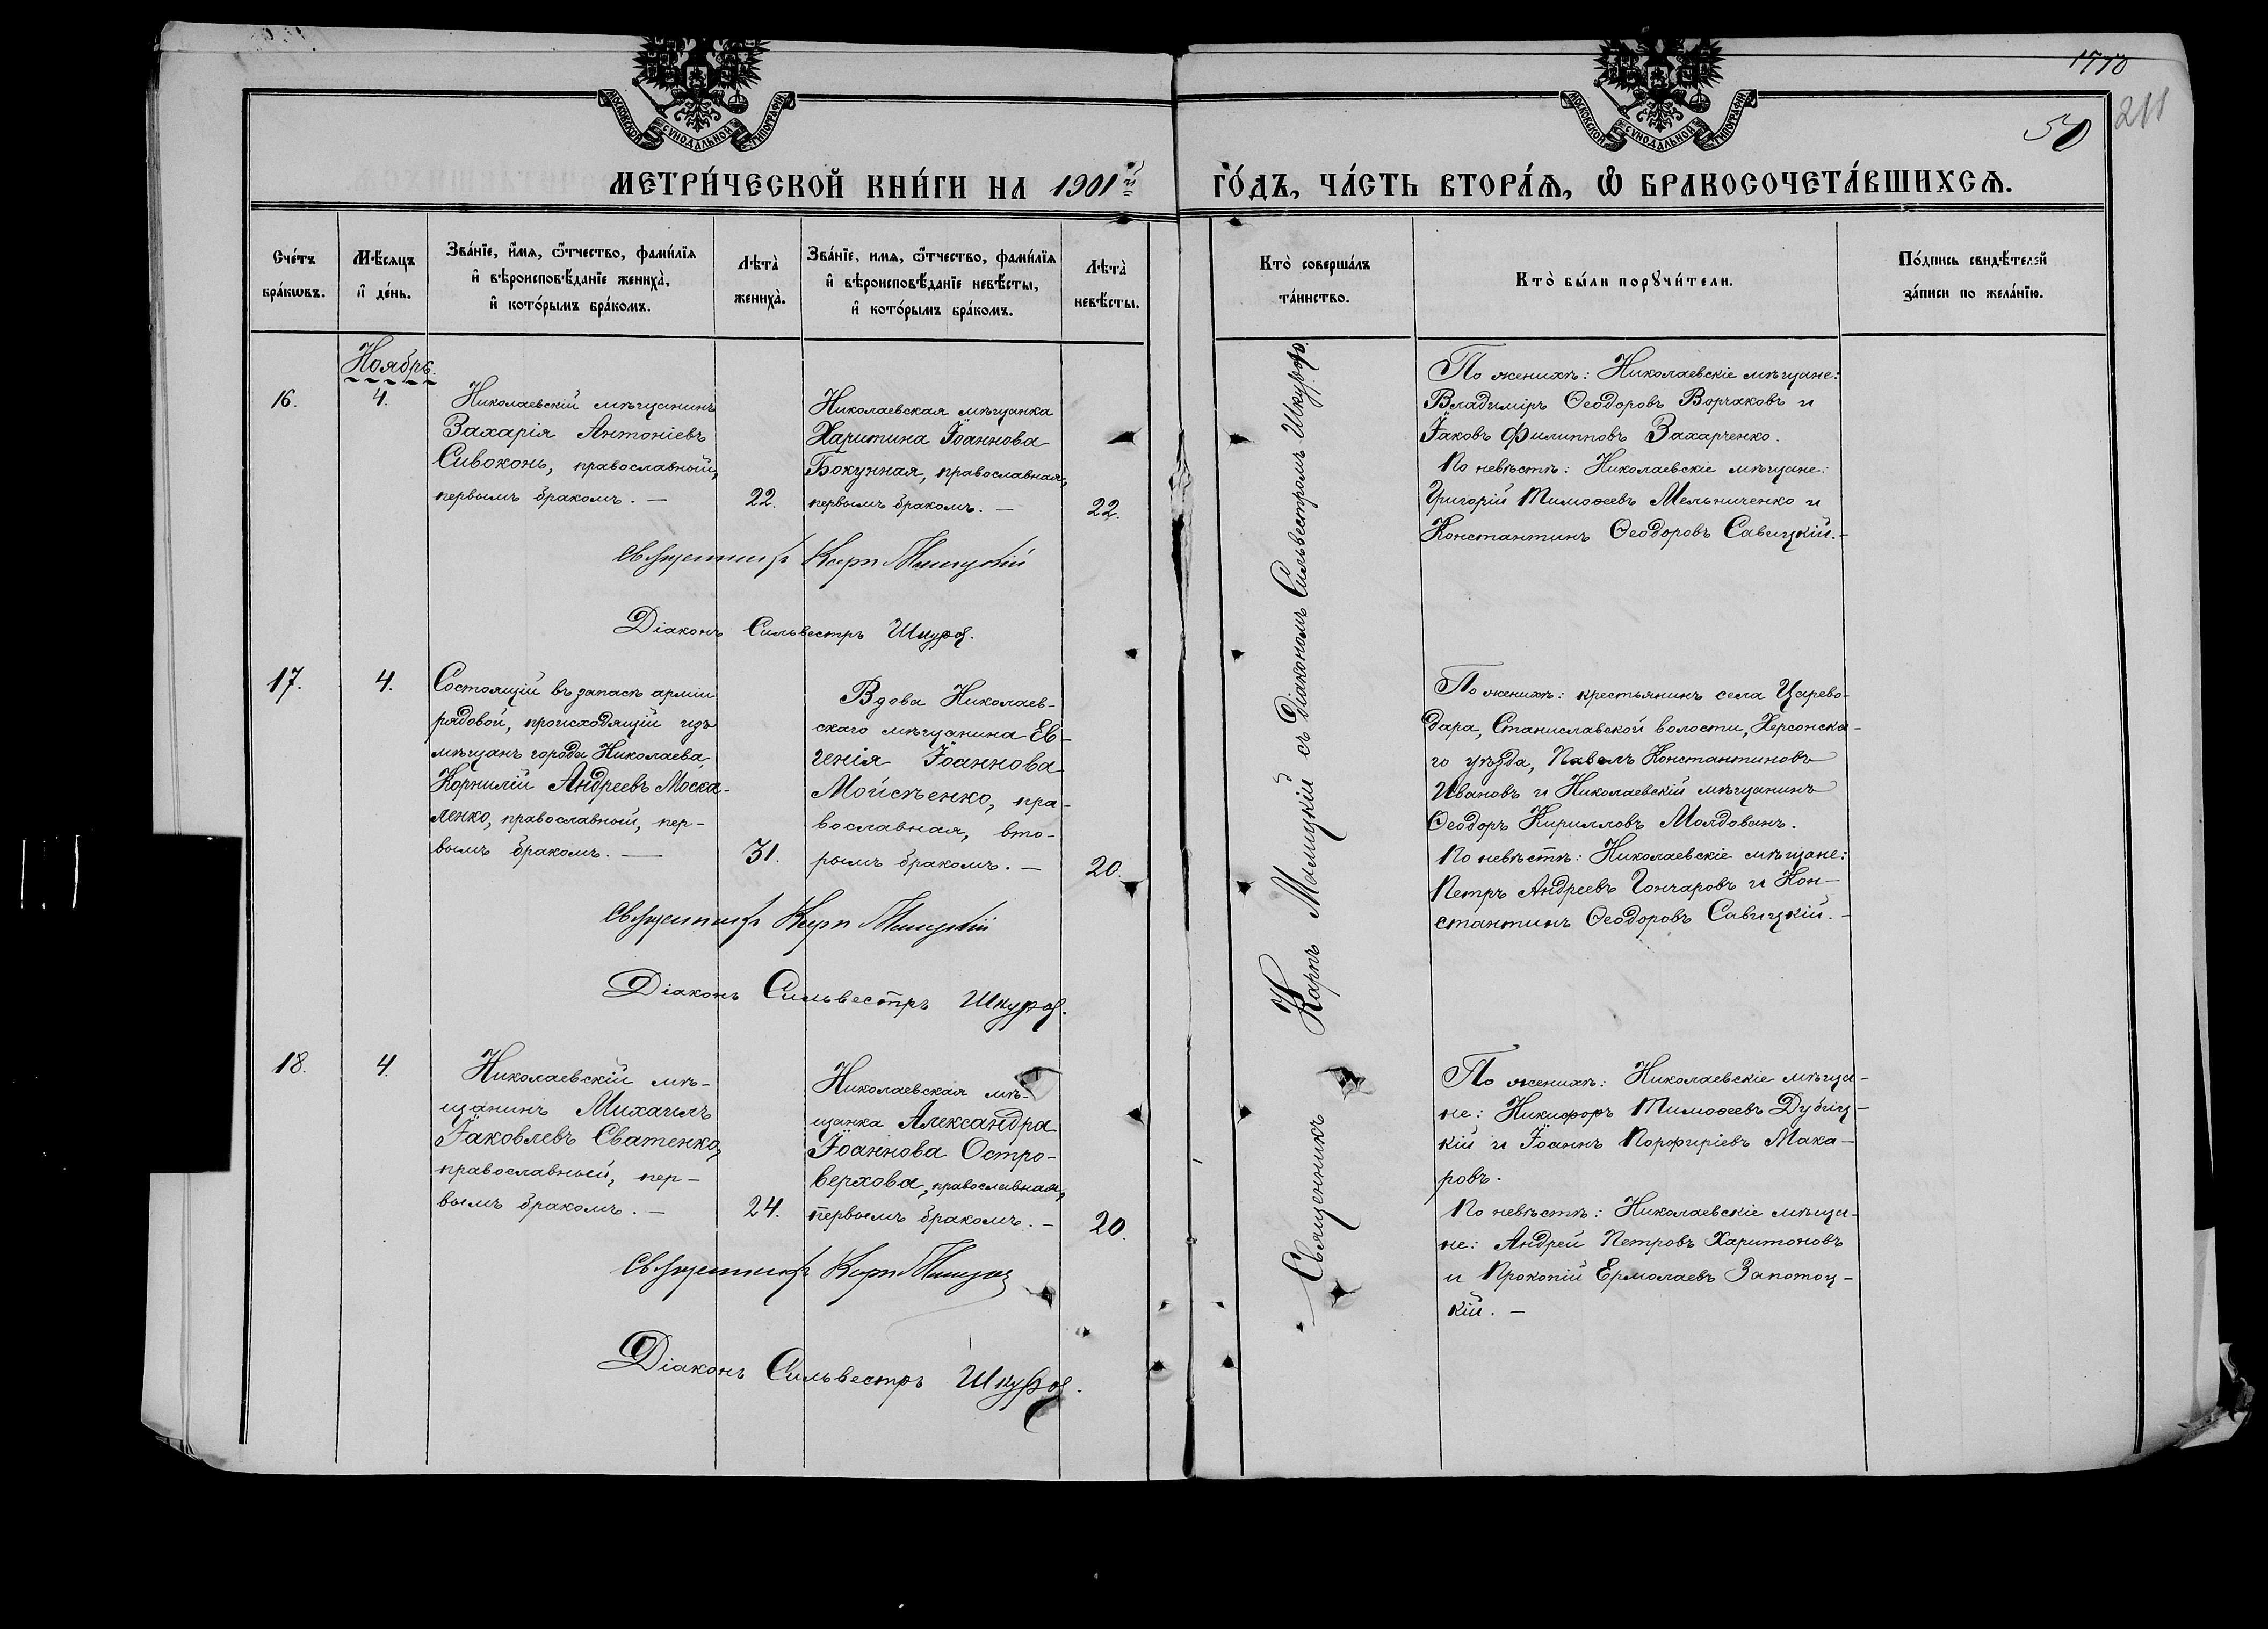 1770
211
50
МОСКОВСКОЙ СѴНОДАЛЬНОЙ ТИПОГРАФІИ
МОСКОВСКОЙ СѴНОДАЛЬНОЙ ТИПОГРАФІИ
МЕТРИ́ЧЕСКОЙ КНИ́ГИ НА 1901й
ГО́ДЪ, ЧА́СТЬ ВТОРА́Ѧ, Ѡ҆ БРАКОСОЧЕТА́ВШИХСѦ.
Сче́тъ
бра́кѡвъ.
Мѣ́сяцъ
и҆ де́нь.
Зва́нїе, и҆́мѧ, ѻ҆́тчество, фами́лїѧ
и҆ вѣроисповѣ́данїе жениха̀,
и҆ кото́рымъ бра́комъ.
Лѣта̀
жениха̀.
Зва́нїе, имѧ, ѻ҆́тчество, фами́лїѧ
и҆ вѣроисповѣ́данїе невѣ́сты,
и҆ кото́рымъ бра́комъ.
Лѣта̀
невѣ́сты.
Кто̀ соверша́лъ
та́инство.
Кто̀ бы́ли порꙋчи́тели.
По́дпись свидѣ́телей
за́писи по жела́нїю.
Ноябрь.
16.
4.
Николаевскій мѣщанинъ
Захарія Антоніевъ
Сивоконь, православный,
первымъ бракомъ. —
22.
Николаевская мѣщанка
Харитина Іоаннова
Бокунная, православная,
первымъ бракомъ. —
22.
Священникъ Карпъ Малицкій
Діаконъ Сильвестръ Шкуро.
По женихѣ: Николаевскіе мѣщане:
Владиміръ Ѳеодоровъ Ворчаковъ и
Іаковъ Филипповъ Захарченко.
По невѣстѣ: Николаевскіе мѣщане:
Григорій Тимоѳеевъ Мельниченко и
Константинъ Ѳеодоровъ Савицкій. —
17.
4.
Состоящій въ запасѣ арміи
рядовой, происходящій изъ
мѣщанъ города Николаева,
Корнилій Андреевъ Моска-
ленко, православный, пер-
вымъ бракомъ. —
31.
Вдова Николаев-
скаго мѣщанина Ев-
генія Іоаннова
Мойсѣенко, пра-
вославная, вто-
рымъ бракомъ. —
20.
Священникъ Карпъ Малицкій
Діаконъ Сильвестръ Шкуро.
По женихѣ: крестьянинъ села Царево-
дара, Станиславской волости, Херсонска-
го уѣзда, Павелъ Константиновъ
Ивановъ и Николаевскій мѣщанинъ
Ѳеодоръ Кирилловъ Молдованъ.
По невѣстѣ: Николаевскіе мѣщане:
Петръ Андреевъ Гончаровъ и Кон-
стантинъ Ѳеодоровъ Савицкій. —
18.
4.
Николаевскій мѣ-
щанинъ Михаилъ
Іаковлевъ Сватенко,
православный, пер-
вымъ бракомъ. —
24.
Николаевская мѣ-
щанка Александра
Іоаннова Остро-
верхова, православная,
первымъ бракомъ. —
20.
Священникъ Карпъ Малицкій
Діаконъ Сильвестръ Шкуро.
По женихѣ: Николаевскіе мѣща-
не: Никифоръ Тимоѳеевъ Дубиц-
кій и Іоаннъ Порфиріевъ Мака-
ровъ.
По невѣстѣ: Николаевскіе мѣща-
не: Андрей Петровъ Харитоновъ
и Прокопій Ермолаевъ Запотоц-
кій. —
Священникъ Карпъ Малицкій съ Діакономъ Сильвестромъ Шкурою.